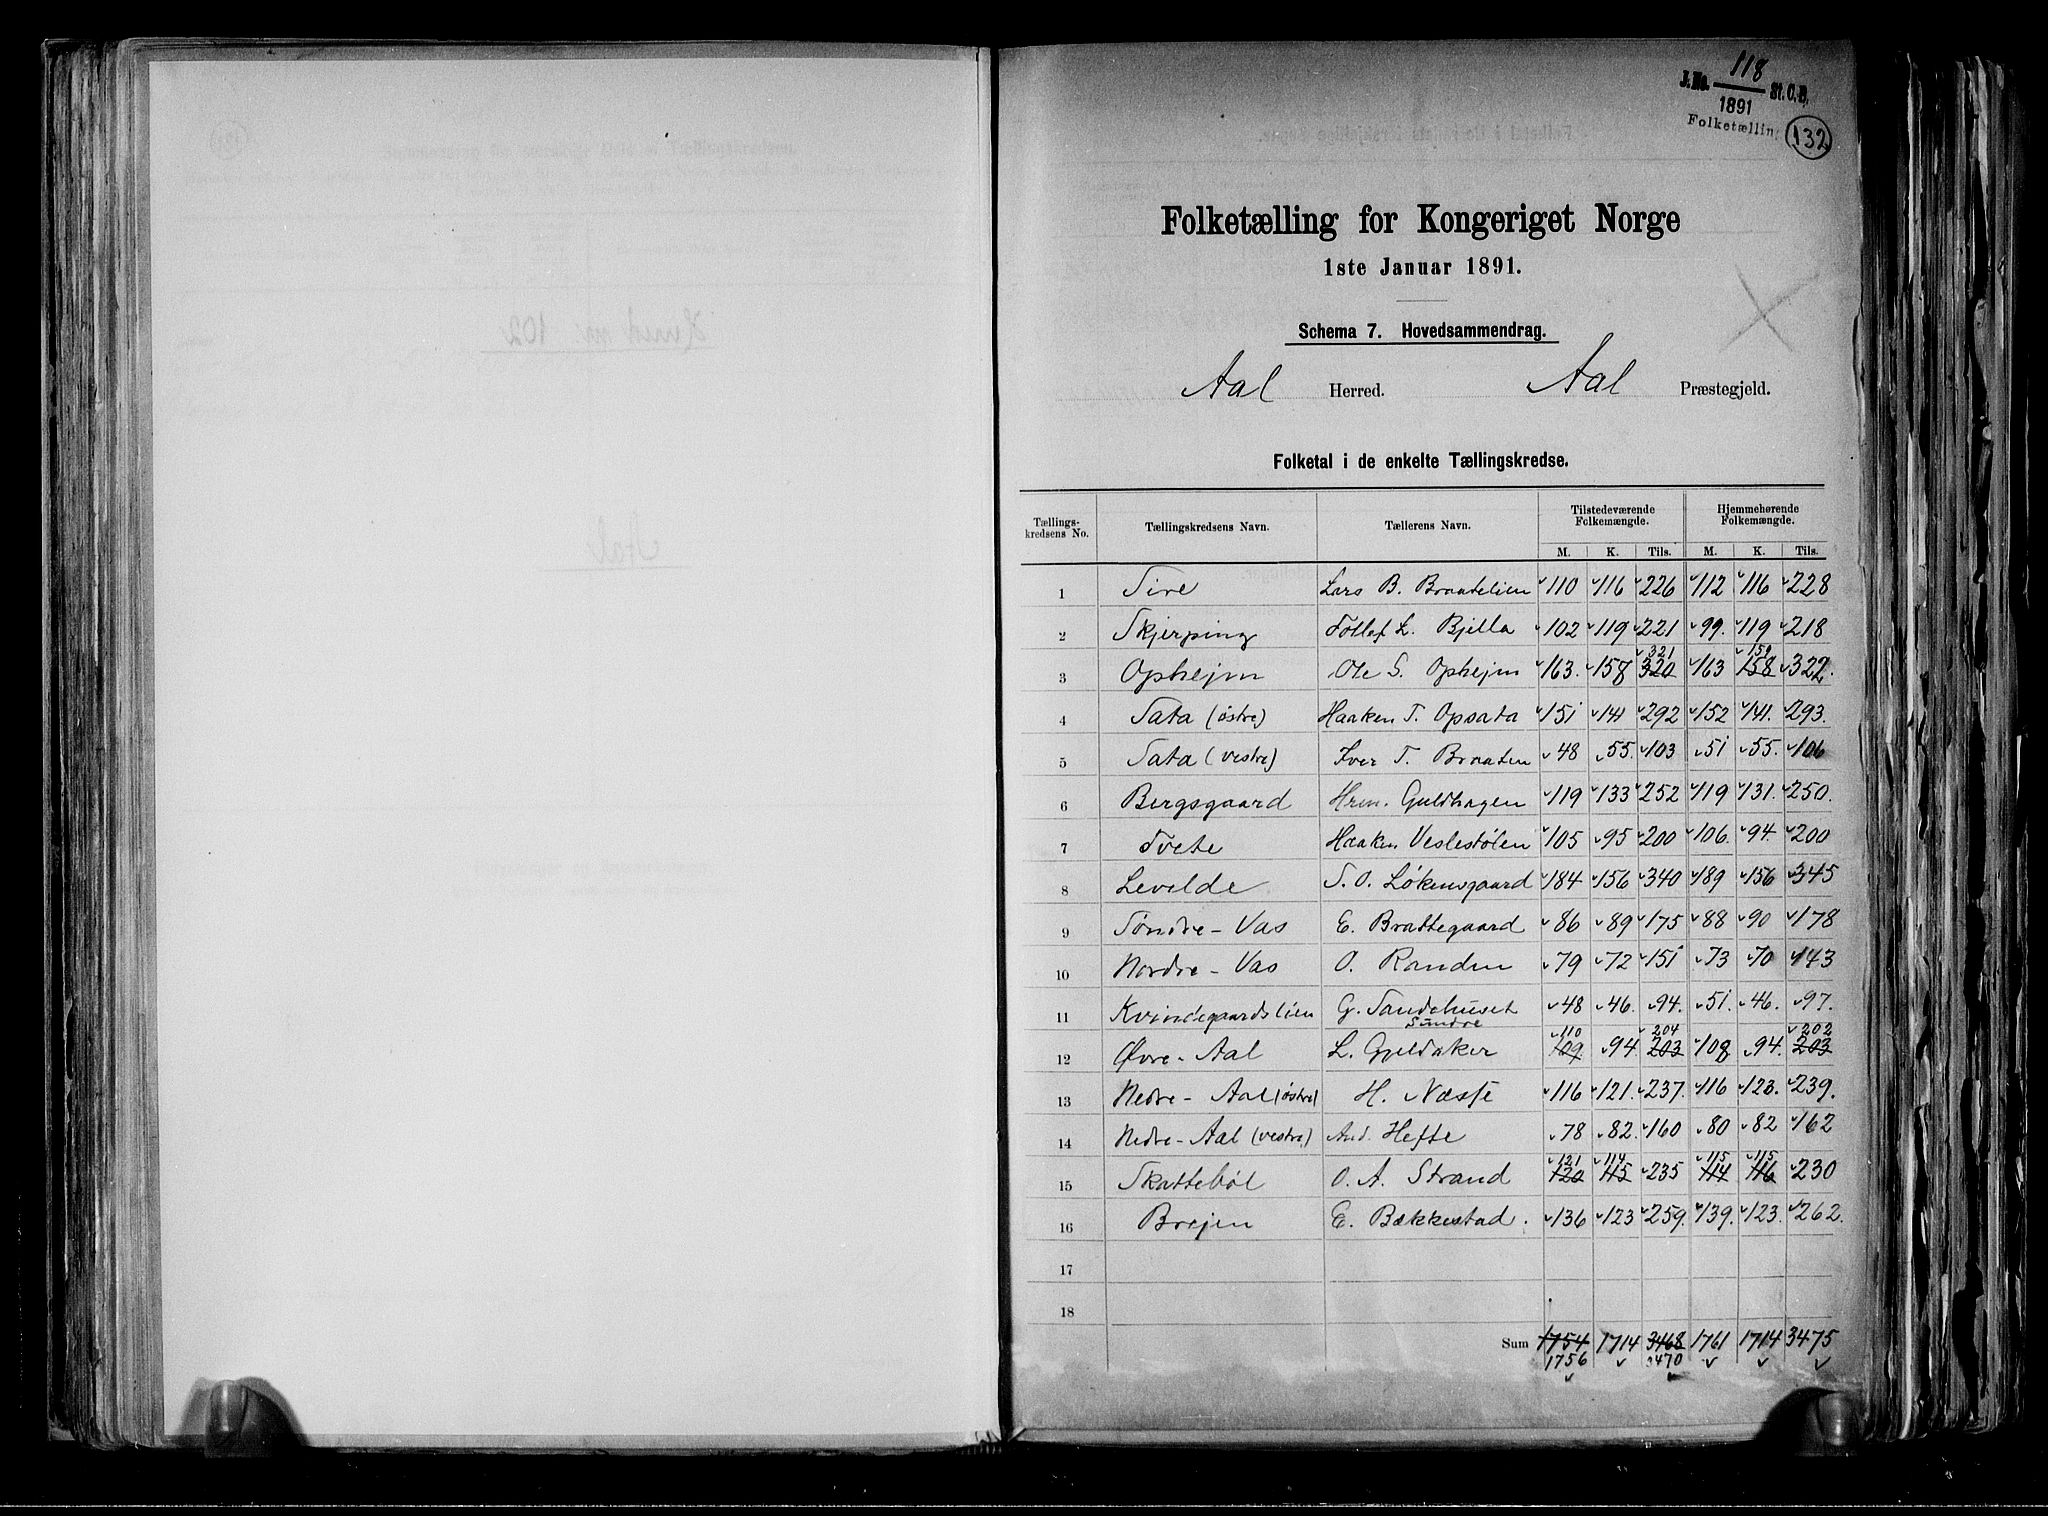 J.No. 118 St.C.B.
1891
Folketælling
132
Folketælling for Kongeriget Norge
1ste Januar 1891.
Schema 7. Hovedsammendrag.
Aal Herred. Aal Præstegjeld.
Folketal i de enkelte Tællingskredse.
Tællings-kredsens No. Tællingskredsens Navn. Tællerens Navn. Tilstedeværende Folkemængde. Hjemmehørende Folkemængde.
M. K. Tils. M. K. Tils.
1 Sire Lars B. Braatelien 110 116 226 112 116 228
2 Skjerping Tollef L. Bjella 102 119 221 99. 119 218
321 159
3 Ophejm Ole S. Ophejm 163. 158 320 163 158 322.
4 Sata (østre) Haaken T. Opsata 151 141 292 152 141. 293.
5 Sata (vestre) Iver T. Braaten 48 55. 103 51 55. 106
6 Bergsgaard Hrm. Guldhagen 119 133 252 119 131. 250.
7 Tvete Haaken Veslestølen 105 95 200 106. 94. 200
8 Levelde S. O. Løkensgaard 184 156 340 189 156 345
9 Søndre-Vas E. Brattegaard 86 89 175 88 90 178
10 Nordre-Vas O. Randen 79 72 151 73 70 143
11 Kvindegaardslien G. Sandehuset 48 46. 94. 51 46. 97.
Sundre 110 204 202
12 Øvre-Aal L. Guldaker 109. 94 203 108 94. 203
13 Nedre-Aal (østre) H. Næsse 116 121. 237. 116 123. 239.
14 Nedre-Aal (vestre) And. Hefte 78 82. 160 80 82 162
121 114 115 115
15 Skattebøl O. A. Strand 120 115 235 114 116 230
16 Brejen E. Bækkestad. 136 123 259. 139. 123. 262.
17
18
Sum 1754 1714 3468 1761 1714 3475
1756 3470